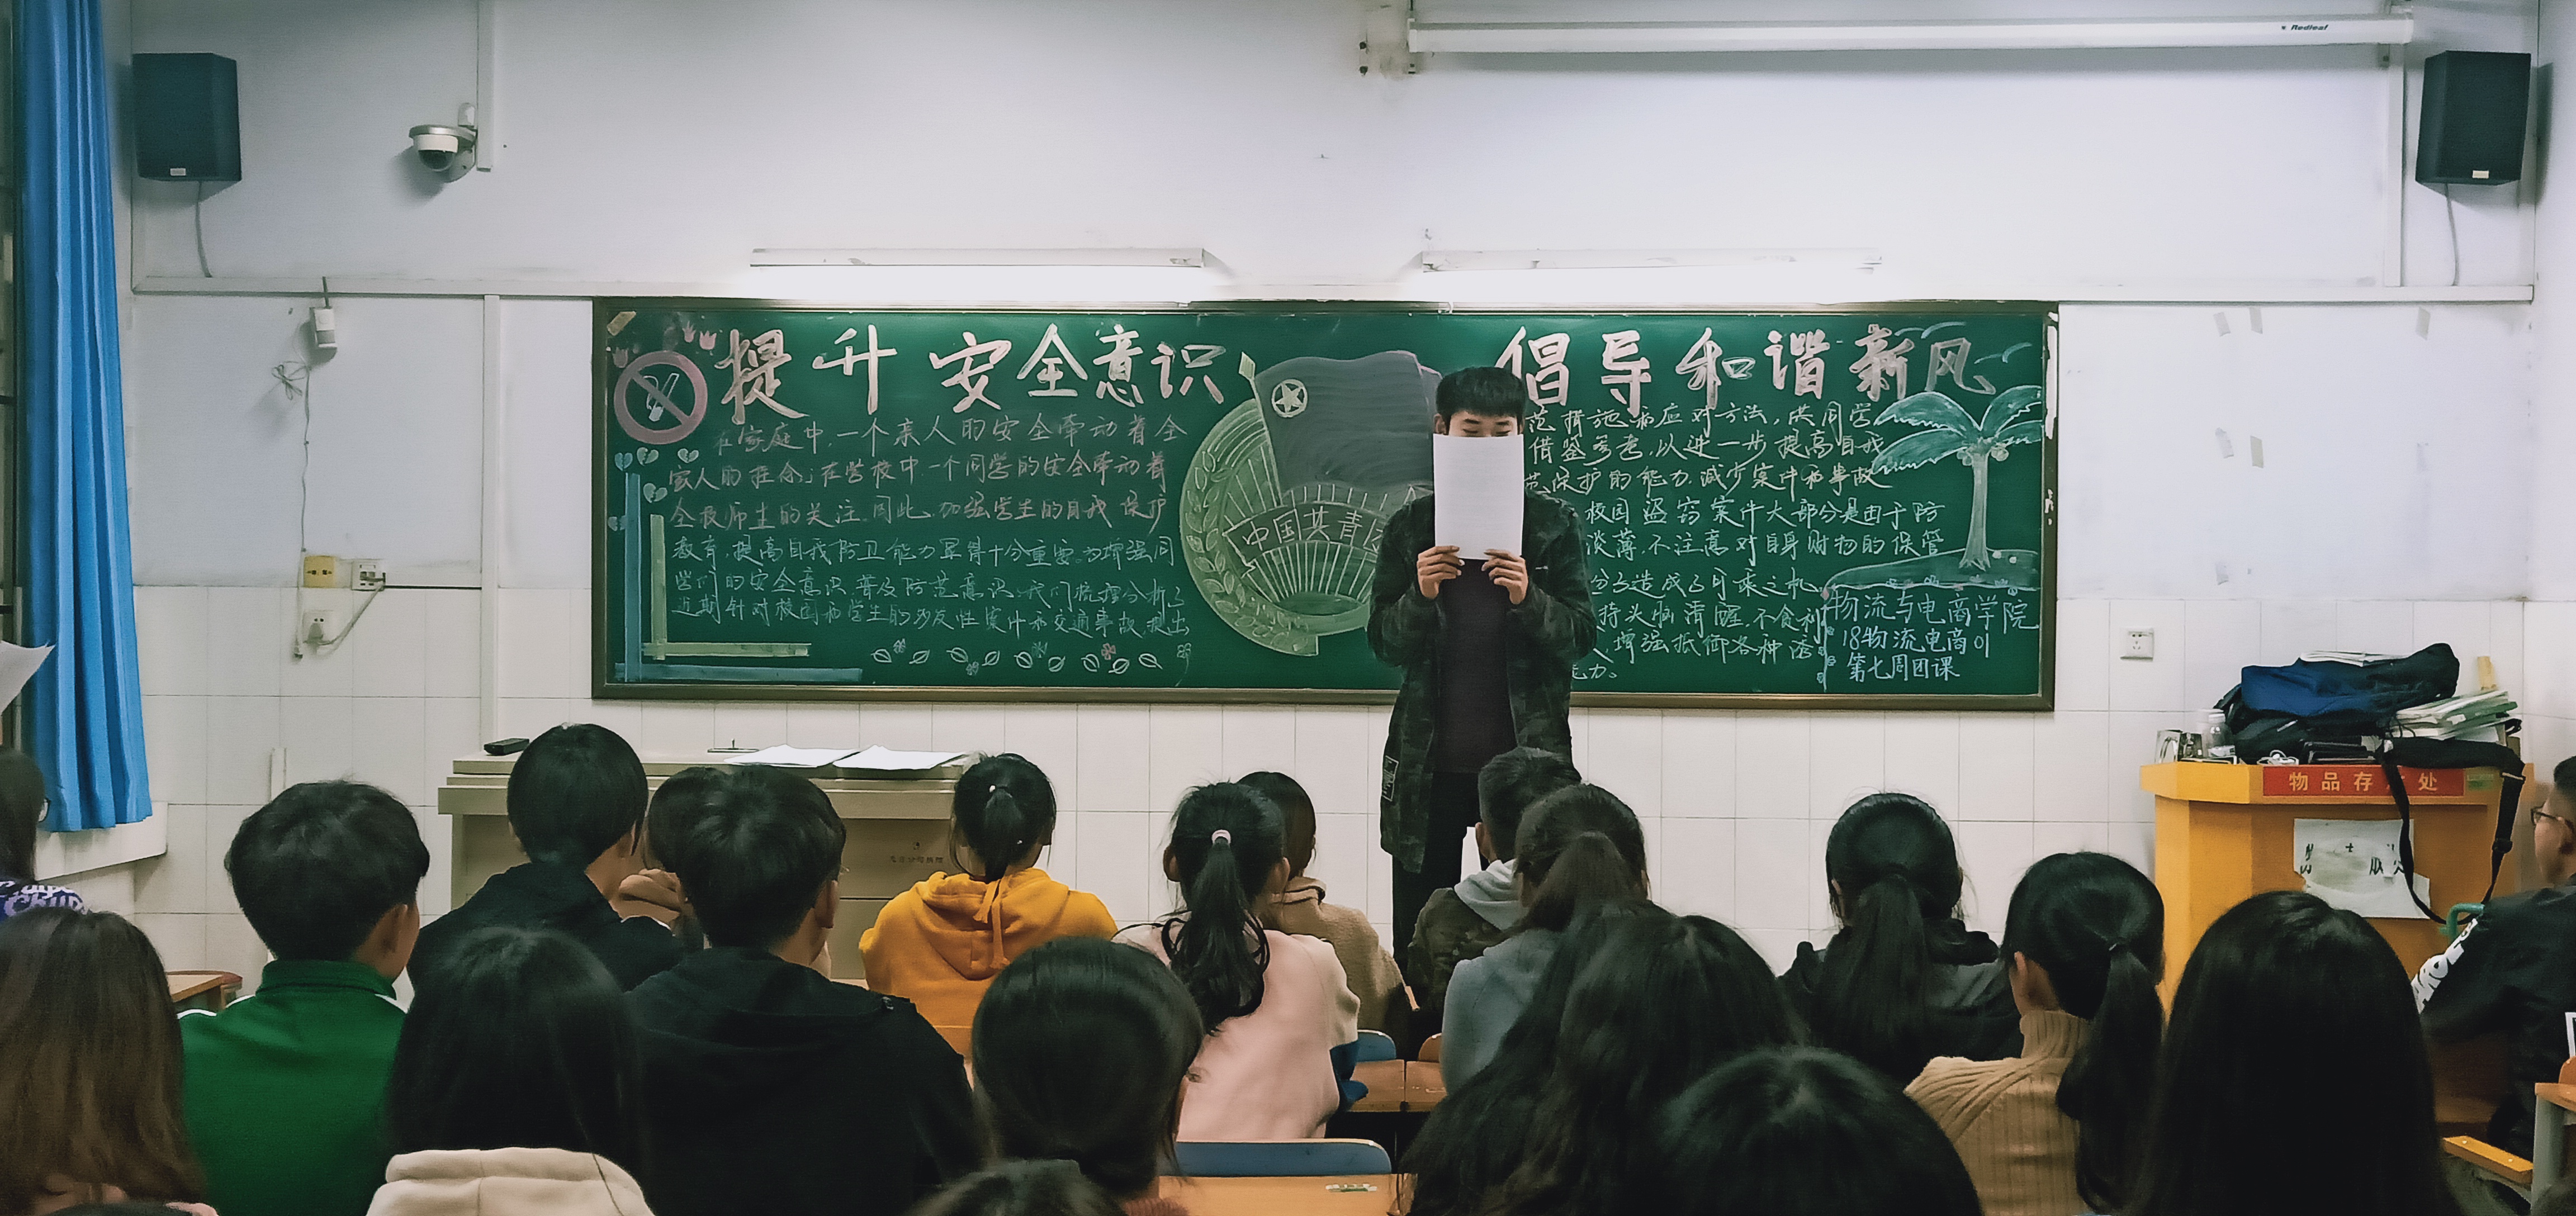 Redleaf
提升安全意识
倡导和谐新风
在家庭中,一个亲人的安全牵动着全
家人的挂念;在学校中,一个同学的安全牵动着
全校师生的关注。因此,加强学生的自我保护
教育,提高自我防卫能力显得十分重要。为增强同
学们的安全意识,普及防范意识,我们梳理分析了
近期针对校园和学生的多发性案件和交通事故,提出
中国共青团
范措施和应对方法,供同学
借鉴参考,以进一步提高自我
范保护的能力,减少案件和事故
校园盗窃案件大部分是由于防
淡薄,不注意对自身财物的保管
分子造成了可乘之机
持头脑清醒,不贪利
增强抵御各种
能力。
物流与电商学院
18物流电商01
第七周团课
物品存 处